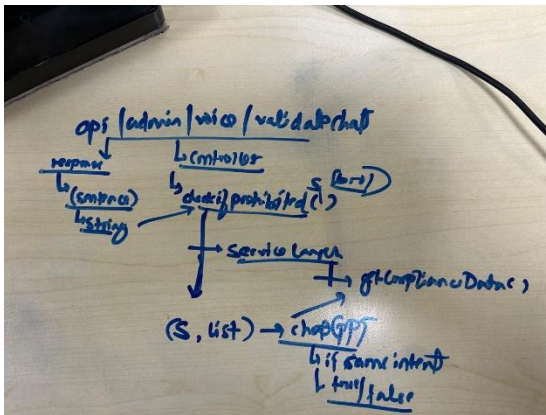 api/admin/voice/validatechat
response
controller
(sentence)
string
checkifprohibited( )
S
service layer
getComplianceData( )
(S, list) → chatGPT
if same intent
true/false